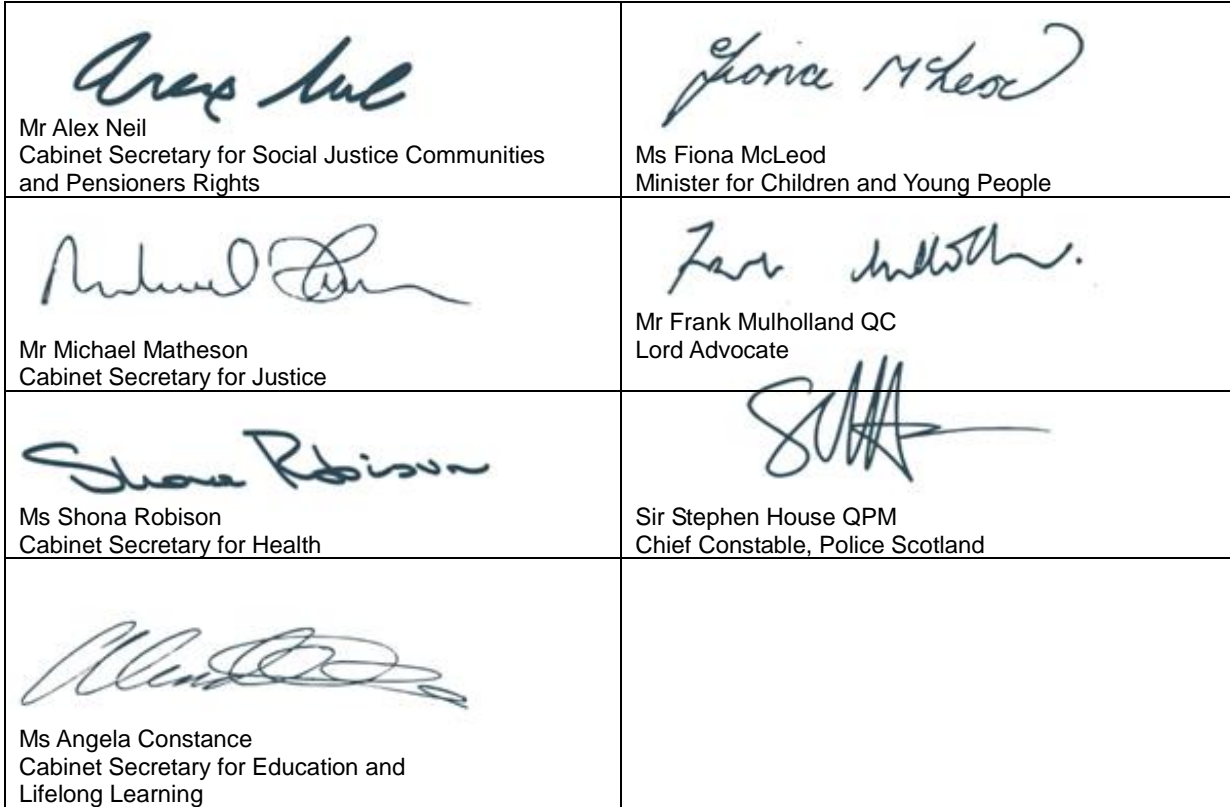 Alex Neil
Mr Alex Neil
Cabinet Secretary for Social Justice Communities
and Pensioners Rights
Fiona McLeod
Ms Fiona McLeod
Minister for Children and Young People
Mr Michael Matheson
Cabinet Secretary for Justice
Mr Frank Mulholland QC
Lord Advocate
Shona Robison
Ms Shona Robison
Cabinet Secretary for Health
Sir Stephen House QPM
Chief Constable, Police Scotland
Ms Angela Constance
Cabinet Secretary for Education and
Lifelong Learning